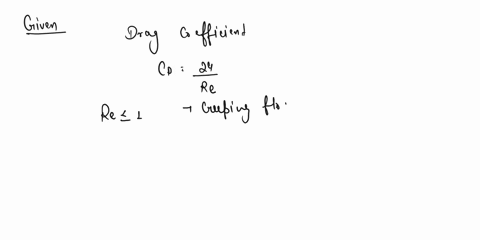 Given
Drag Coefficient
CD : 24/Re
Re ≤ 1 → Creeping flo.